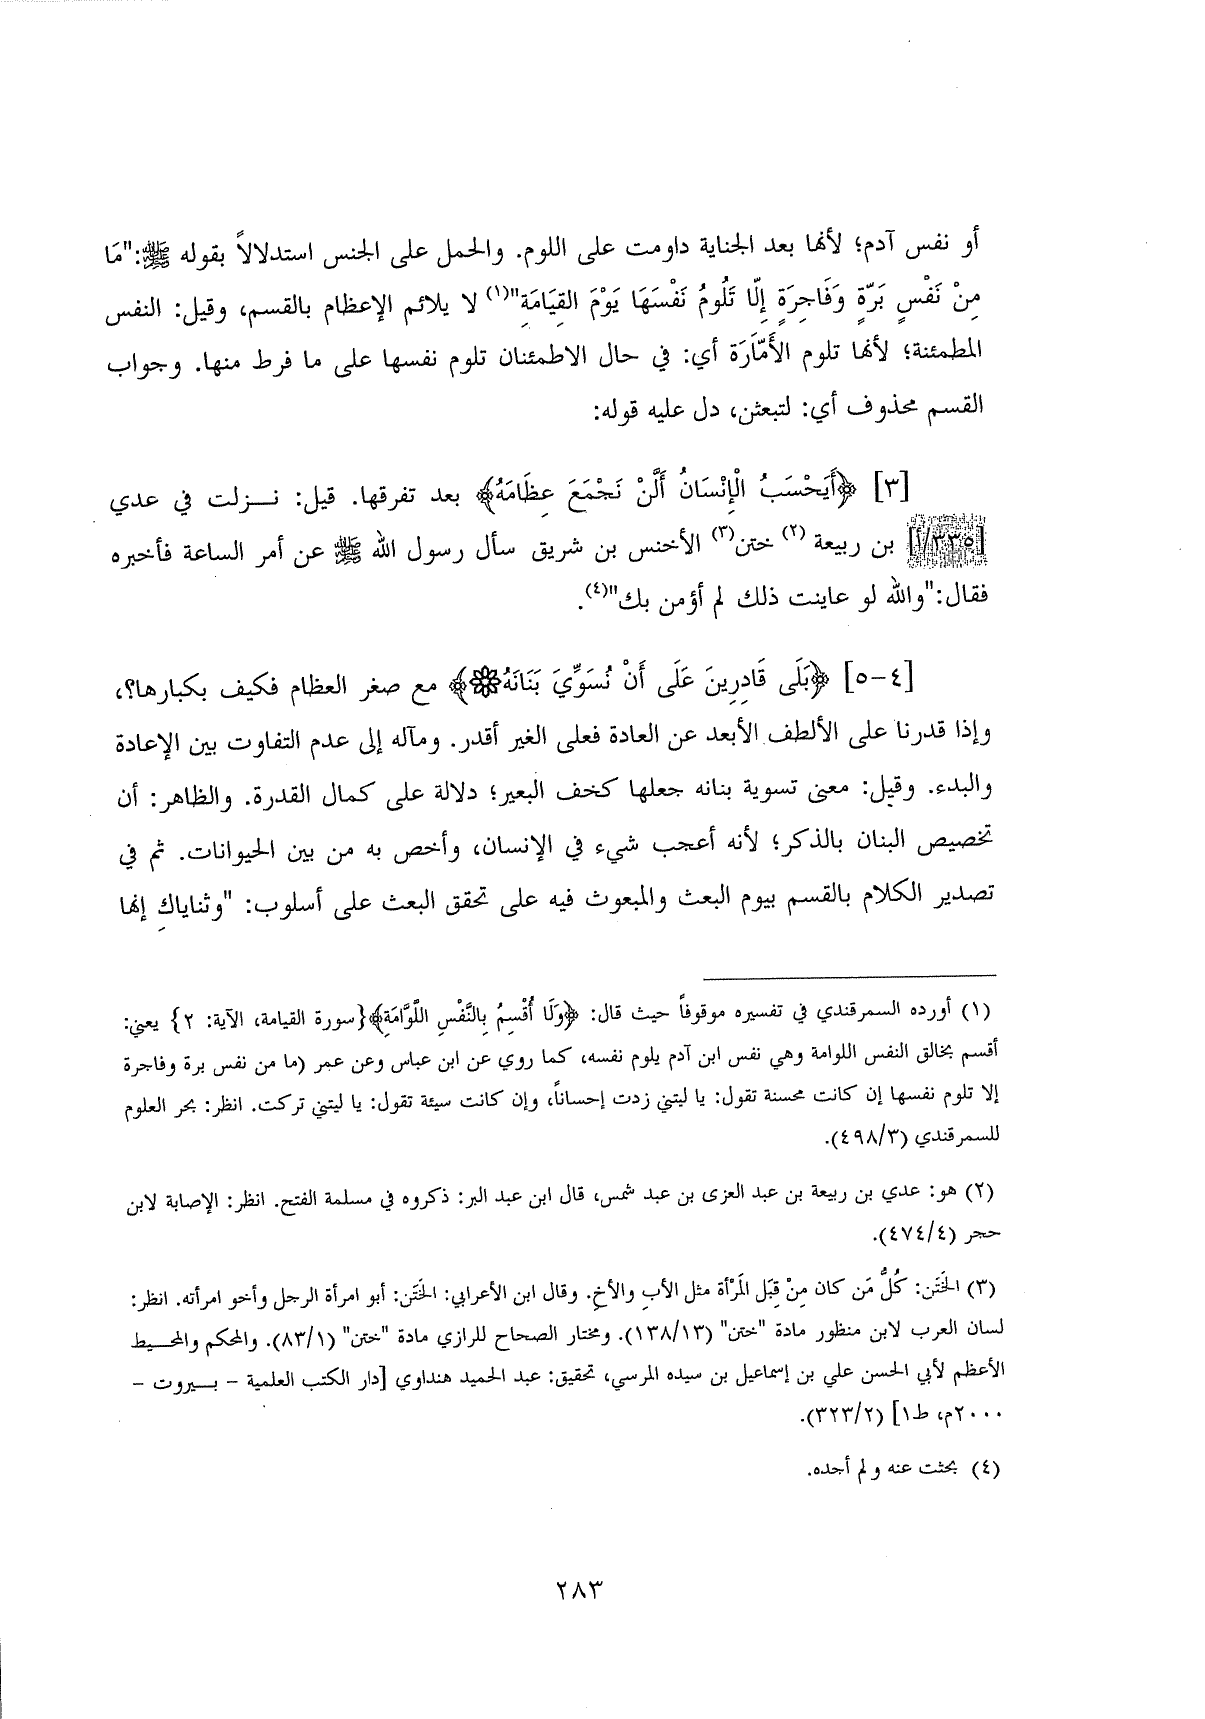 أو نفس آدم؛ لأنها بعد الجناية داومت على اللوم. والحمل على الجنس استدلالاً بقوله ﷺ:"مَا
مِنْ نَفْسٍ بَرّةٍ وَفَاجِرَةٍ إِلّا تَلُومُ نَفْسَهَا يَوْمَ القِيَامَةِ"(١) لا يلائم الإعظام بالقسم، وقيل: النفس
المطمئنة؛ لأنها تلوم الأَمّارَة أي: في حال الاطمئنان تلوم نفسها على ما فرط منها. وجواب
القسم محذوف أي: لتبعثن، دل عليه قوله:
[٣] ﴿أَيَحْسَبُ الْإِنْسَانُ أَلَّنْ نَجْمَعَ عِظَامَهُ﴾ بعد تفرقها. قيل: نـــزلت في عدي
[٣٣٥/أ] بن ربيعة (٢) ختن(٣) الأخنس بن شريق سأل رسول الله ﷺ عن أمر الساعة فأخبره
فقال:"والله لو عاينت ذلك لم أؤمن بك"(٤).
[٤-٥] ﴿بَلَى قَادِرِينَ عَلَى أَنْ نُسَوِّيَ بَنَانَهُ۝﴾ مع صغر العظام فكيف بكبارها؟،
وإذا قدرنا على الألطف الأبعد عن العادة فعلى الغير أقدر. ومآله إلى عدم التفاوت بين الإعادة
والبدء. وقيل: معنى تسوية بنانه جعلها كخف البعير؛ دلالة على كمال القدرة. والظاهر: أن
تخصيص البنان بالذكر؛ لأنه أعجب شيء في الإنسان، وأخص به من بين الحيوانات. ثم في
تصدير الكلام بالقسم بيوم البعث والمبعوث فيه على تحقق البعث على أسلوب: "وثناياكِ إنها
(١) أورده السمرقندي في تفسيره موقوفاً حيث قال: ﴿وَلَا أُقْسِمُ بِالنَّفْسِ اللَّوَّامَةِ﴾{سورة القيامة، الآية: ٢} يعني:
أقسم بخالق النفس اللوامة وهي نفس ابن آدم يلوم نفسه، كما روي عن ابن عباس وعن عمر (ما من نفس برة وفاجرة
إلا تلوم نفسها إن كانت محسنة تقول: يا ليتني زدت إحساناً، وإن كانت سيئة تقول: يا ليتني تركت. انظر: بحر العلوم
للسمرقندي (٤٩٨/٣).
(٢) هو: عدي بن ربيعة بن عبد العزى بن عبد شمس، قال ابن عبد البر: ذكروه في مسلمة الفتح. انظر: الإصابة لابن
حجر (٤٧٤/٤).
(٣) الخَتَن: كُلُّ مَن كان مِنْ قِبَل المَرْأة مثل الأبِ والأخِ. وقال ابن الأعرابي: الخَتَن: أبو امرأة الرجل وأخو امرأته. انظر:
لسان العرب لابن منظور مادة "ختن" (١٣٨/١٣). ومختار الصحاح للرازي مادة "ختن" (٨٣/١). والمحكم والمحـــيط
الأعظم لأبي الحسن علي بن إسماعيل بن سيده المرسي، تحقيق: عبد الحميد هنداوي [دار الكتب العلمية - بـــيروت -
٢٠٠٠م، ط١] (٣٢٣/٢).
(٤) بحثت عنه ولم أجده.
٢٨٣